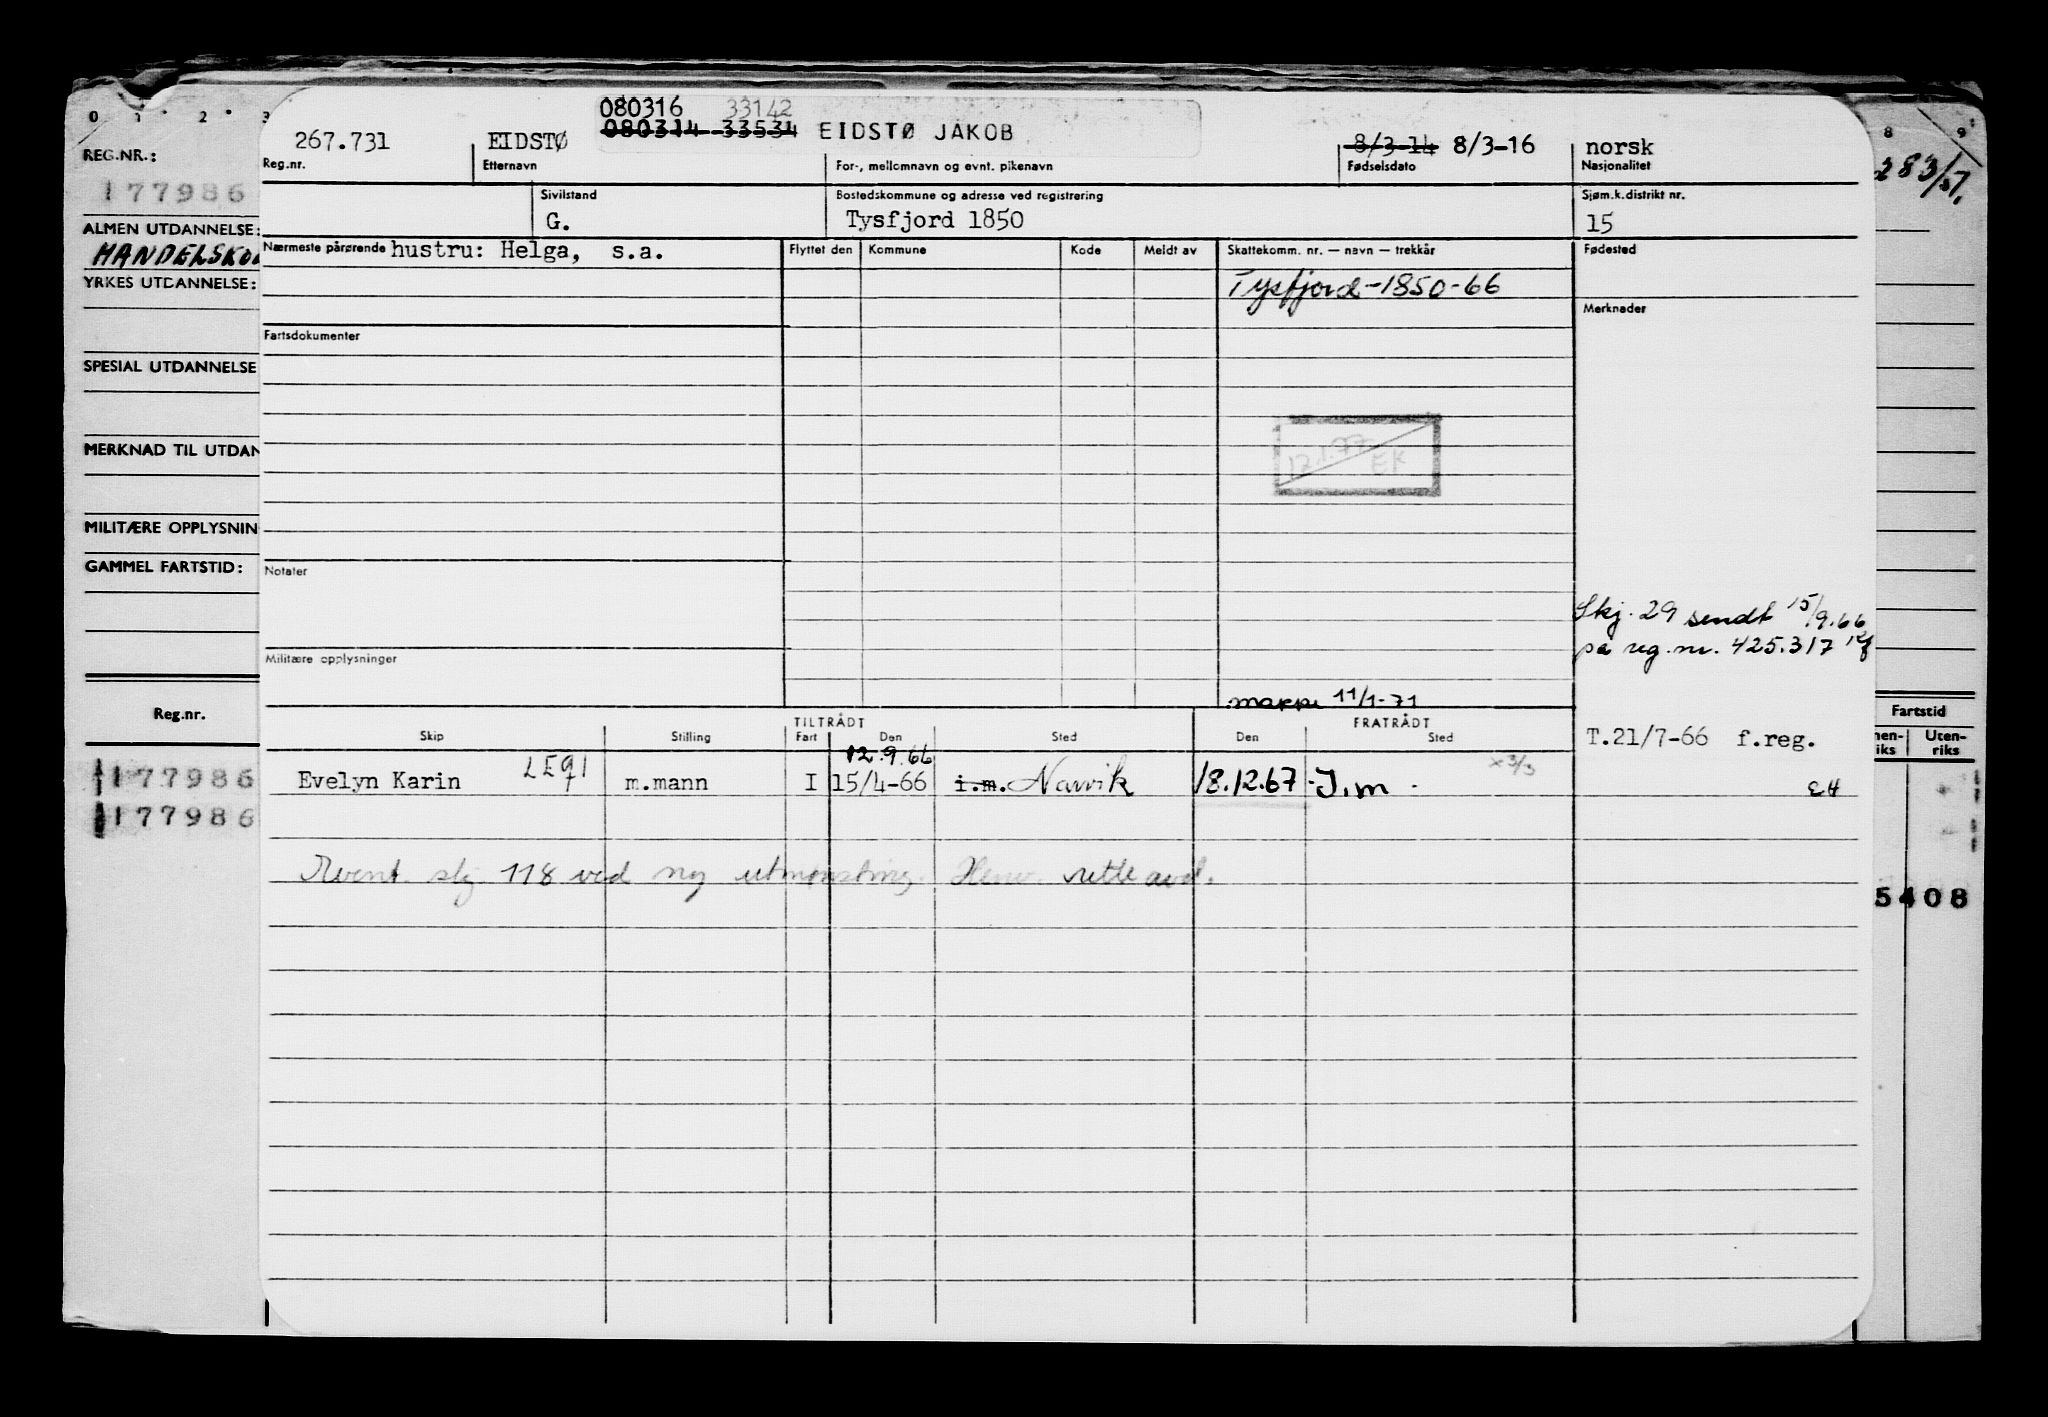 080316 33142
080314 33534 EIDSTØ JAKOB
267.731 EIDSTØ 8/3-14 8/3-16 norsk
Reg.nr. Etternavn For-, mellomnavn og evnt. pikenavn Fødselsdato Nasjonalitet
Sivilstand Bostedskommune og adresse ved registrering Sjøm.k.distrikt nr.
G. Tysfjord 1850 15
Nærmeste pårørende hustru: Helga, s.a. Flyttet den Kommune Kode Meldt av Skattekomm. nr. — navn — trekkår Fødested
Tysfjord-1850-66
Fartsdokumenter Merknader
12.1.77 EK
Notater
Skj. 29 sendt 15/9.66
på reg.nr. 425.317
Militære opplysninger
mappe 11/1-71
TILTRÅDT FRATRÅDT
Skip Stilling Fart Den Sted Den Sted T.21/7-66 f.reg.
12.9.66
Evelyn Karin LEQI m.mann I 15/4-66 i.m. Narvik 18.12.67 J.m. x3/3 EH
Event. skj 118 ved ny utmønstring. Henv. rette avd.
0 1 2 3
REG.NR.:
177986
ALMEN UTDANNELSE:
HANDELSKO
YRKES UTDANNELSE:
SPESIAL UTDANNELSE
MERKNAD TIL UTDAN
MILITÆRE OPPLYSNIN
GAMMEL FARTSTID:
Reg.nr.
177986
177986
8 9
283/57.
Fartstid
nen-
iks
Uten-
riks
5408